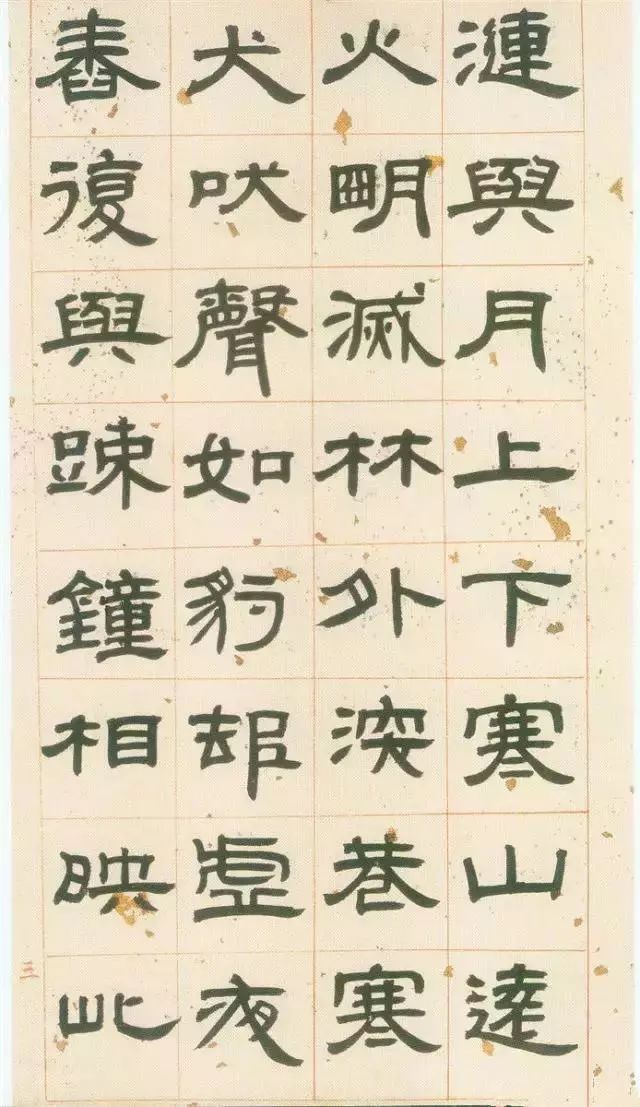 漣與月上下寒山遠
火明滅林外深巷寒
犬吠聲如豹邨虛夜
舂復與踈鐘相映此
三